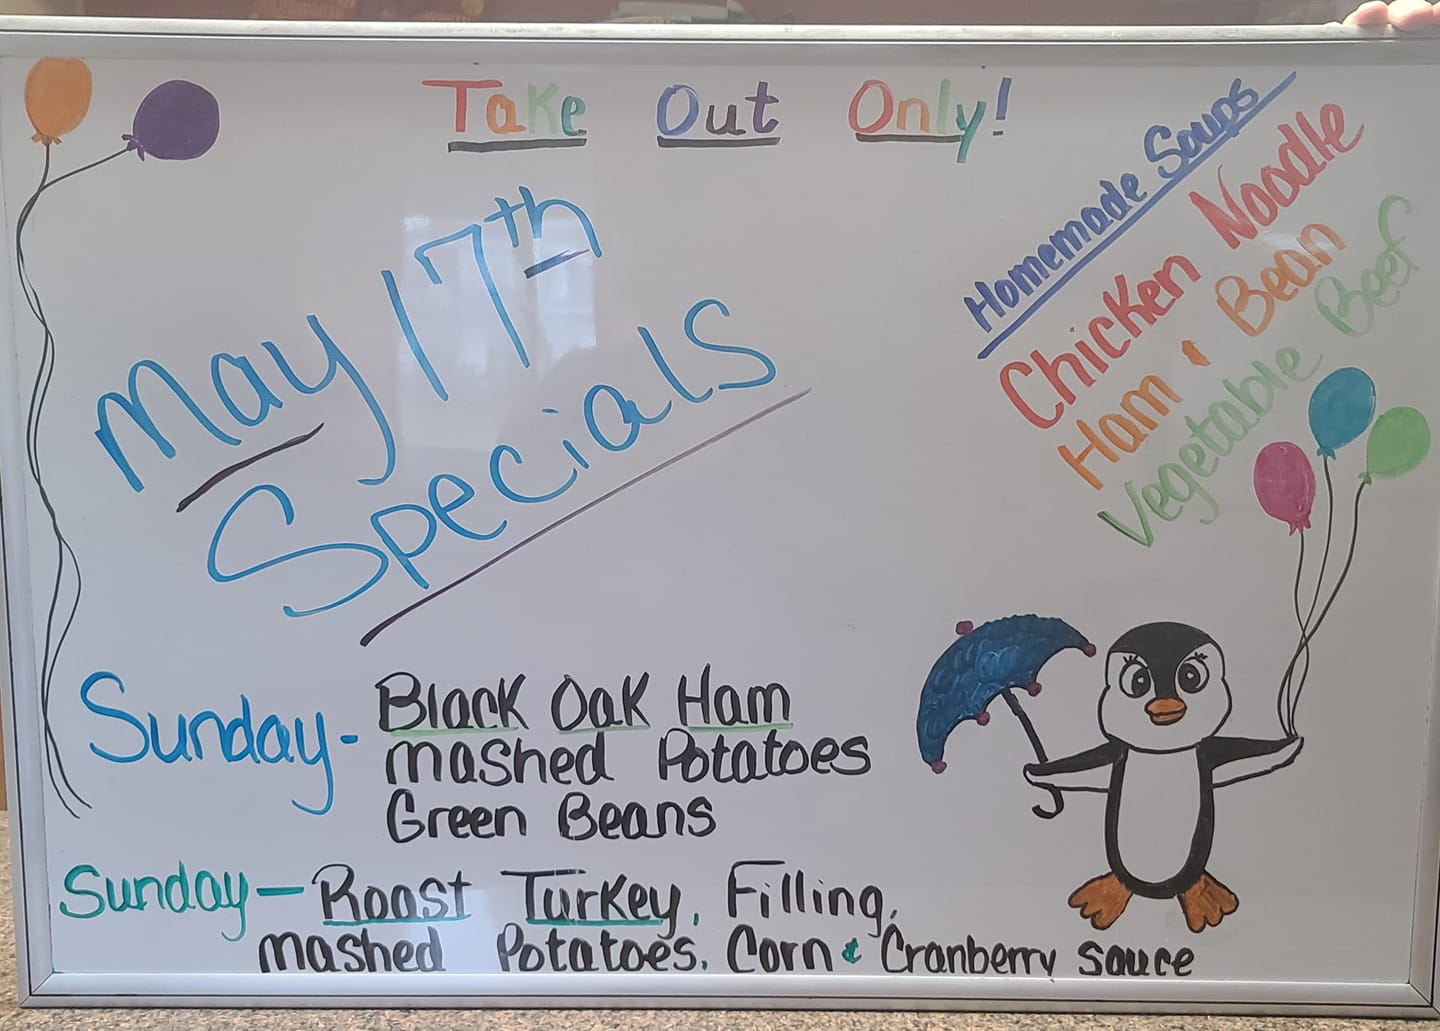 Take Out Only!
May 17th
Specials
Homemade Soups
Chicken Noodle
Ham & Bean
Vegetable Beef
Sunday- Black Oak Ham
mashed Potatoes
Green Beans
Sunday- Roast Turkey, Filling,
mashed Potatoes, Corn & Cranberry sauce